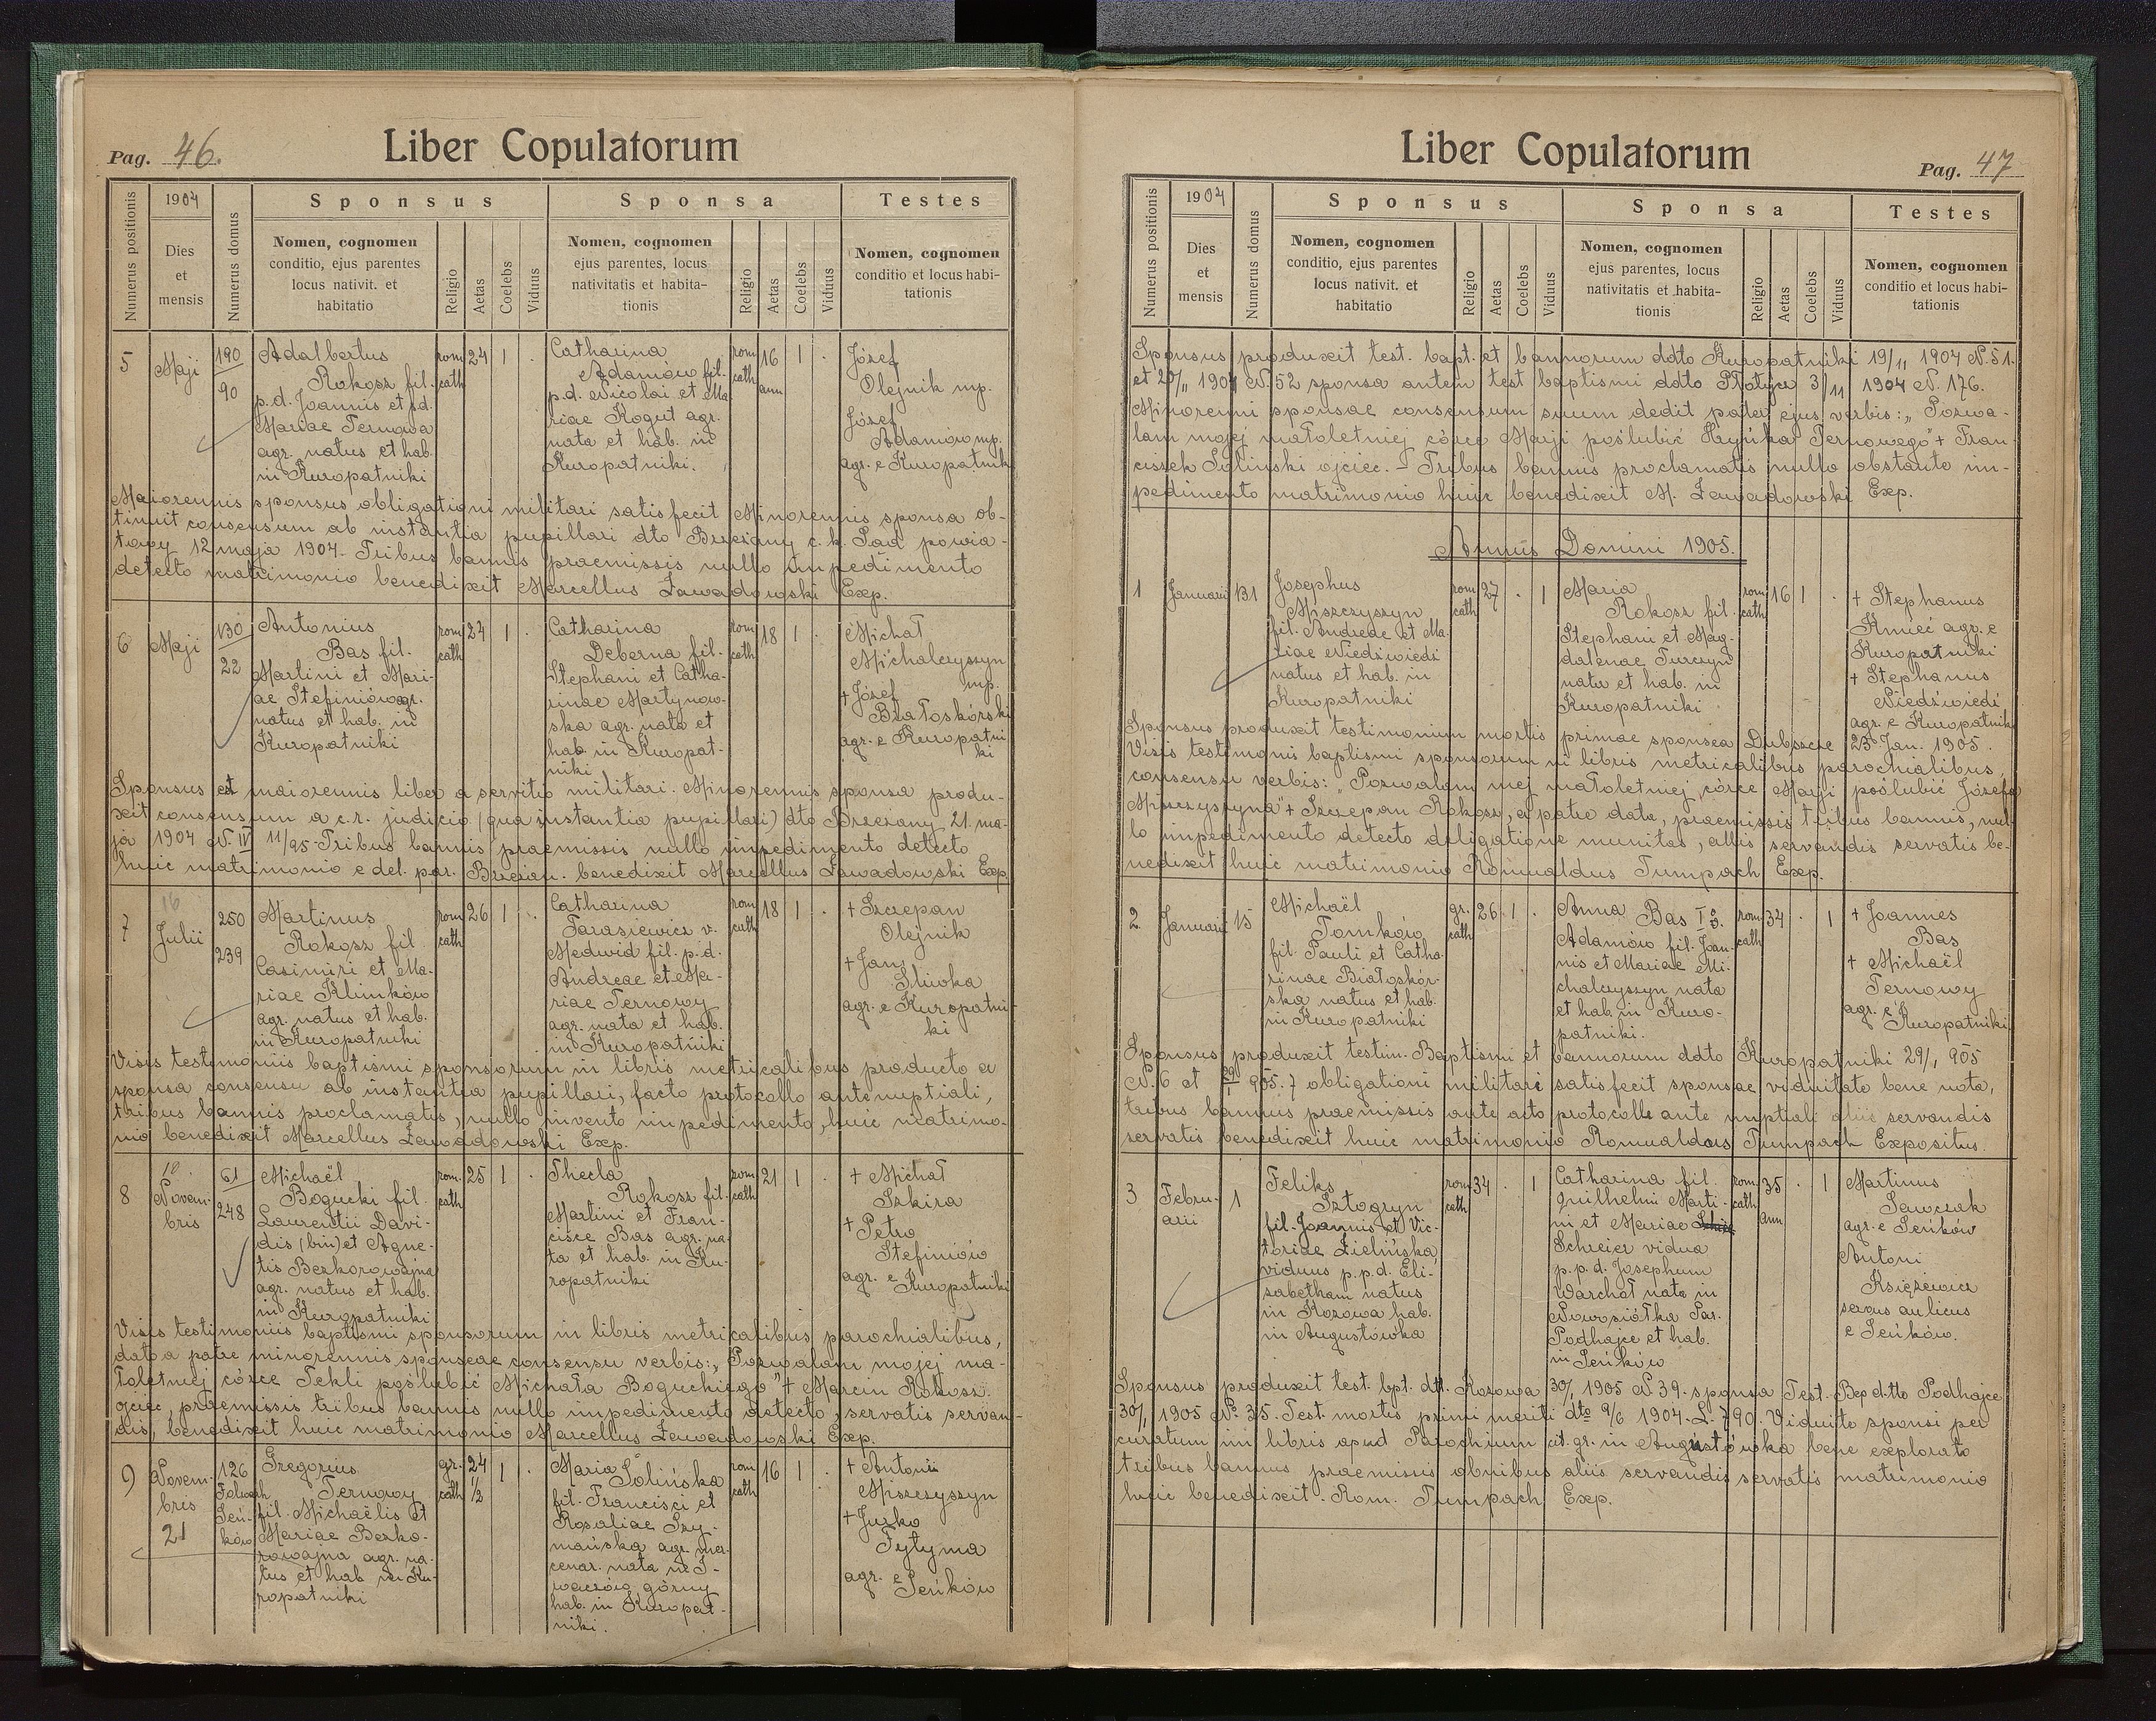 Pag. 46.
Liber Copulatorum
Numerus positionis
1904
Dies
et
mensis
Numerus domus
Sponsus
Nomen, cognomen
conditio, ejus parentes
locus nativit. et
habitatio
Religio
Aetas
Coelebs
Viduus
Sponsa
Nomen, cognomen
ejus parentes, locus
nativitatis et habita-
tionis
Religio
Aetas
Coelebs
Viduus
Testes
Nomen, cognomen
conditio et locus habi-
tationis
5
Maji
190
90
Adalbertus
Rokosz fil.
p.d. Joannis et p.d.
Mariae Ternowa
agr. natus et hab.
in Kuropatniki
rom
cath
24
1
.
Catharina
Adamów fil.
p.d. Nicolai et Ma
riae Kogut agr.
nata et hab. in
Kuropatniki.
rom
cath
16
ann
1
.
Józef
Olejnik mp.
Józef
Adamów mp.
agr. e Kuropatnik
Maiorennis sponsus obligationi militari satisfecit Minorennis sponsa ob-
tinuit consensum ab instantia pupillari dto Brzeżany c. k. Sąd powia-
towy 12 maja 1904. Tribus bannis praemissis nullo impedimento
detecto matrimonio benedixit Marcellus Zawadowski Exp.
6
Maji
130
22
Antonius
Bas fil.
Martini et Mari-
ae Stefiniów agr.
natus et hab. in
Kuropatniki
rom
cath
24
1
.
Catharina
Deberna fil.
Stephani et Catha-
rinae Martynow-
ska agr. nata et
hab. in Kuropat-
niki
rom
cath
18
1
.
Michał
Michalczyszyn
mp.
+ Józef
Białoskórski
agr. e Kuropatni
ki
Sponsus est maiorennis liber a servitio militari. Minorennis sponsa produ-
xit consensum a c.r. judicio (qua instantia pupillari) dto Brzeżany 21. ma-
ja 1904 N. IV 11/95. Tribus bannis praemissis nullo impedimento detecto
huic matrimonio e del. par. Brzeżan. benedixit Marcellus Zawadowski Exp.
7
16
Julii
250
239
Martinus
Rokosz fil
Casimiri et Ma-
riae Klimków
agr. natus et hab.
in Kuropatniki
rom
cath
26
1
.
Catharina
Tarasiewicz v.
Medwid fil. p.d.
Andreae et Ma-
riae Ternowy
agr. nata et hab.
in Kuropatniki
rom
cath
18
1
.
+ Szczepan
Olejnik
+ Jan
Śliwka
agr. e Kuropatni-
ki
Visis testimoniis baptismi sponsorum in libris metricalibus producto a
sponsa consensu ab instantia pupillari, facto protocollo antenuptiali,
tribus bannis proclamatus, nullo invento impedimento, huic matrimo-
nio benedixit Marcellus Zawadowski Exp.
8
10.
Novem-
bris
61
248
Michaël
Bogucki fil.
Laurentii Davi-
dis (bin) et Agne-
tis Bezkorowajna
agr. natus et hab.
in Kuropatniki
rom.
cath
25
1
.
Thecla
Rokosz fil.
Martini et Fran-
cisce Bas agr. na-
ta et hab. in Ku-
ropatniki
rom
cath
21
1
.
+ Michał
Szkira
+ Petro
Stefiniów
agr. e Kuropatniki
Visis testimoniis baptismi sponsorum in libris metricalibus parochialibus,
dato a patre minorennis sponseae consensu verbis: „Pozwalam mojej ma-
łoletniej córce Tekli poślubić Michała Boguckiego" + Marcin Rokosz
ojciec, praemissis tribus bannis nullo impedimento detecto, servatis servan-
dis, benedixit huic matrimonio Marcellus Zawadowski Exp.
9
Novem-
bris
21
126
Folwark
Seń-
ków
Gregorius
Ternowy
fil. Michaëlis et
Mariae Bezko-
rowajna agr. na-
tus et hab in Ku-
ropatniki
gr.
cath
24
1/2
1
Maria
Solińska
fil. Francisci et
Rosaliae Szy-
mańska agr. mer-
cenar. nata in I-
waczów górny
hab. in Kuropat-
niki.
rom
cath
16
1
.
+ Antoni
Miszczyszyn
+ Jurko
Tytyma
agr. e
Seńków
Liber Copulatorum
Pag. 47
Numerus positionis
1904
Dies
et
mensis
Numerus domus
Sponsus
Nomen, cognomen
conditio, ejus parentes
locus nativit. et
habitatio
Religio
Aetas
Coelebs
Viduus
Sponsa
Nomen, cognomen
ejus parentes, locus
nativitatis et habita-
tionis
Religio
Aetas
Coelebs
Viduus
Testes
Nomen, cognomen
conditio et locus habi-
tationis
Sponsus produxit test. bapt. et bannorum ddto Kuropatniki 19/11 1904 N. 51.
et 20/11 1904 N. 52 sponsa autem test baptismi ddto Płotycz 3/11 1904 N. 176.
Minorenni sponsae consensum suum dedit pater ejus verbis: „Pozwa-
lam mojej małoletniej córce Marji poślubić Hryńka Ternowego" + Fran-
ciszek Soliński ojciec. - Tribus bannis proclamatis nullo obstante im-
pedimento matrimonio huic benedixit M. Zawadowski Exp.
Annus Domini 1905.
1
Januarii
131
Josephus
Miszczyszyn
fil. Andreae et Ma-
riae Niedźwiedź
natus et hab. in
Kuropatniki
rom
cath
27
.
1
Maria
Rokosz fil.
Stephani et Mag-
dalenae Turczyn
nata et hab. in
Kuropatniki
rom
cath
16
1
.
+ Stephanus
Kmieć agr. e
Kuropatniki
+ Stephanus
Niedźwiedź
agr. e Kuropatniki
Sponsus produxit testimonium mortis primae sponsea Dubszcze 23 Jan. 1905.
Visis testimonis baptismi sponsorum in libris metricalibus parochialibus,
consensu verbis: „Pozwalam mej małoletniej córce Marji poślubić Józefa
Miszczyszyna" + Szczepan Rokosz, a patre data, praemissis tribus bannis, nul-
lo impedimento detecto deligatione munitas, allis servandis servatis be-
nedixit huic matrimonio Romualdus Tumpach Exp.
2
Januarii
15
Michaël
Tomków
fil. Pauli et Catha
rinae Białoskór-
ska natus et hab.
in Kuropatniki
gr.
cath
26
1
.
Anna Bas
Adamów fil. Joan-
nis et Mariae Mi-
chalczyszyn nata
et hab. in Kuro-
patniki.
rom
cath
34
.
1
+ Joannes
Bas
+ Michaël
Ternowy
agr. e
Kuropatniki
Sponsus produxit testim. Baptismi et bannorum ddto Kuropatniki 29/1 905
N. 6 et 29/1 905. 7 obligationi militari satisfecit sponsae viduitate bene nota,
tribus bannis praemissis ante acto protocollo ante nuptiali aliis servandis
servatis benedixit huic matrimonio Romualdus Tumpach Expositus.
3
Febru-
arii
1
Feliks
Sztogryn
fil. Joannis et Vic-
toriae Zielińska,
viduus p.p.d. Eli-
sabetham natus
in Kozowa hab.
in Augustówka
rom
cath
34
.
1
Catharina fil.
Guilhelmi Marti-
ni et Mariae
Schreier vidua
p.p.d. Josephum
Warchoł nata in
Nowosiółka Par.
Podhajce et hab.
in Seńków
rom
cath
35
ann
.
1
Martinus
Sawczak
agr. e Seńków
Antoni
Księżewicz
servus aulicus
e Seńków.
Sponsus produxit test. bpt. dtt. Kozowa 30/1 1905 N 39. sponsa Test. Bap d.tto Podhajce
30/1 1905 N. 35. Test. mortis primi mariti dto 9/6 1904. L. 790. Viduito sponsi per
curatum in libris apud Parochium rit. gr. in Augustówka bene explorato
tribus bannus praemisis obnibus aliis servandis servatis matrimonio
huic benedixit. Rom. Tumpach Exp.